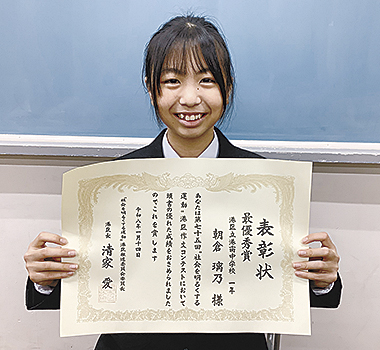 表彰状
最優秀賞
港区立港南中学校 一年
朝倉 璃乃 様
あなたは第七十五回“社会を明るくする
運動”港区作文コンテストにおいて
頭書の優れた成績をおさめられました
のでこれを賞します
令和八年一月十四日
“社会を明るくする運動”港区推進委員会委員長
港区長
清家 愛